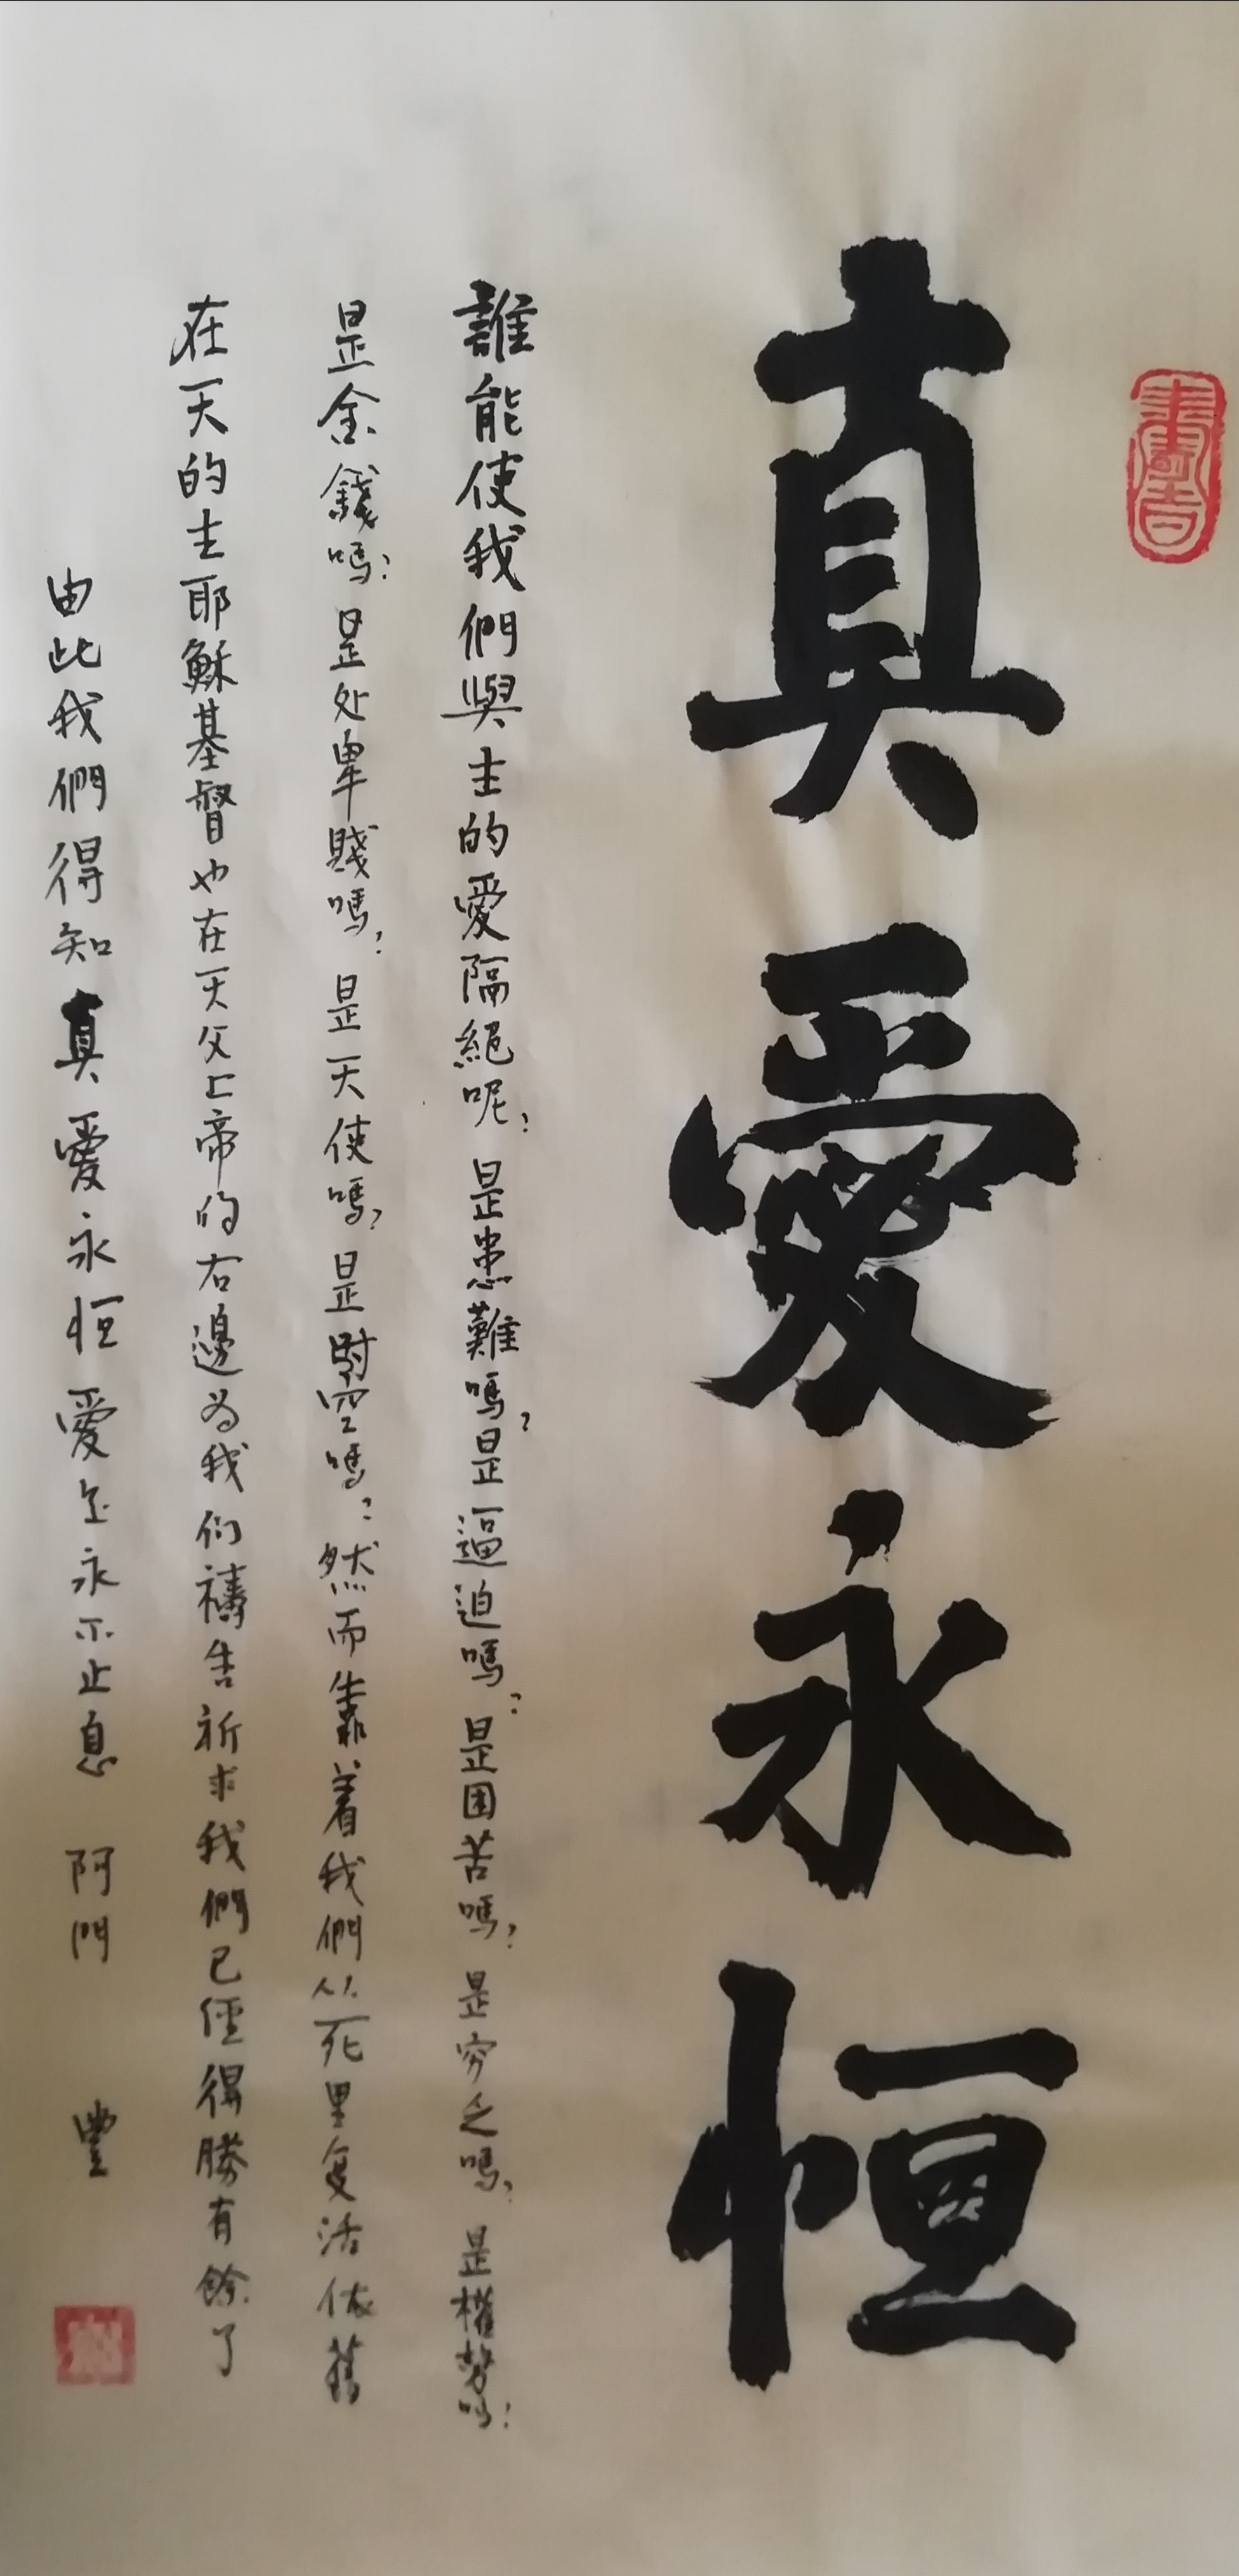 真愛永恒
誰能使我們與主的愛隔絕呢?是患難嗎?是逼迫嗎?是困苦嗎?是穷乏嗎?是權势吗?
是金錢嗎?是处卑賤嗎?是天使嗎?是嗎?然而靠着我們从死里复活依舊
在天的主耶穌基督也在天父上帝的右邊为我们禱告祈求我們已經得勝有餘了
由此我們得知真愛永恒愛永不止息 阿門 豐